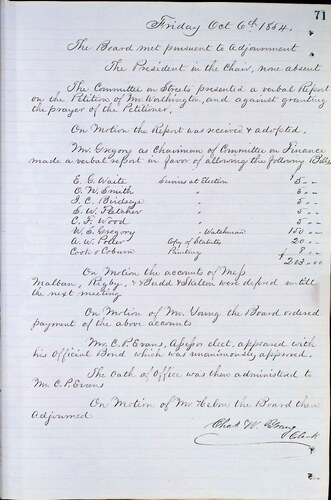 71
Friday Oct 6th 1854.
The Board met pursuant to Adjournment
The President in the Chair, none absent
The Committee on Streets presented a verbal Report
on the Petition of Mr. Worthington, and against granting
the prayer of the Petitioner.
On Motion the Report was received & adopted.
Mr. Gregory as Chairman of Committee on Finance
made a verbal report in favor of allowing the following Bills
E. C. Waite Services at Election $5 " "
O. W. Smith " 5 " "
I. C. Birdseye " 5 " "
S. W. Fletcher " 5 " "
C. F. Wood " 5 " "
W. S. Gregory " Watchman 150 " "
A. W. Potter Copy of Statutes 20 " "
Cook & Coburn Printing 8 " "
$203 " "
On Motion the accounts of Mess
Maltban, Rigby, & Budd & Stalein were defered untill
the next meeting
On Motion of Mr. Young the Board ordered
payment of the above accounts
Mr. C. P. Evans, Assessor elect, appeared with
his Official Bond which was unanimously approved.
The oath of Office was then administered to
Mr. C. P. Evans
On Motion of Mr. the Board then
Adjourned
Chas W.
Clerk